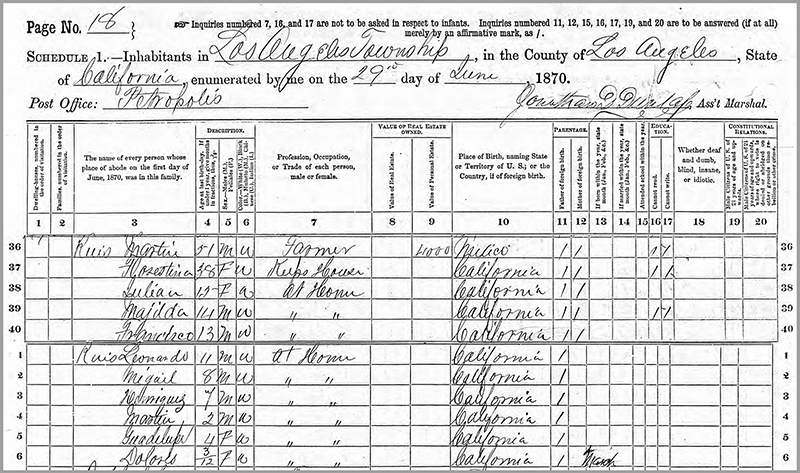 Page No. 18 } Inquiries numbered 7, 16, and 17 are not to be asked in respect to infants. Inquiries numbered 11, 12, 15, 16, 17, 19, and 20 are to be answered (if at all)
merely by an affirmative mark, as /.
SCHEDULE 1.—Inhabitants in Los Angeles Township, in the County of Los Angeles, State
of California, enumerated by me on the 29th day of June, 1870.
Post Office: Petropolis
Jonathan D Dunlap, Ass't Marshal.
Dwelling-houses, numbered in the order of visitation.
Families, numbered in the order of visitation.
The name of every person whose place of abode on the first day of June, 1870, was in this family.
DESCRIPTION.
Age at last birth-day. If under 1 year, give months in fractions, thus, 3/12
Sex.—Males (M.), Females (F.)
Color.—White (W.), Black (B.), Mulatto (M.), Chinese (C.), Indian (I.)
Profession, Occupation, or Trade of each person, male or female.
VALUE OF REAL ESTATE OWNED.
Value of Real Estate.
Value of Personal Estate.
Place of Birth, naming State or Territory of U. S.; or the Country, if of foreign birth.
PARENTAGE.
Father of foreign birth.
Mother of foreign birth.
If born within the year, state month (Jan., Feb., &c.)
If married within the year, state month (Jan., Feb., &c.)
EDUCATION.
Attended school within the year.
Cannot read.
Cannot write.
Whether deaf and dumb, blind, insane, or idiotic.
CONSTITUTIONAL RELATIONS.
Male Citizens of U. S. of 21 years of age and upwards.
1 2 3 4 5 6 7 8 9 10 11 12 13 14 15 16 17 18 19 20
36 Ruis Martin 51 M W Farmer 4000 Mexico 1 1 36
37 F W Keeps House California 1 1 1 1 37
38 Julian F W At Home California 1 1 38
39 14 M W " " California 1 1 39
40 Francisco 13 M W " " California 1 1 40
1 Ruis Leonardo 11 M W At Home California 1 1
2 Miguel 8 M W " " California 1 2
3 7 M W " " California 1 3
4 Martin 2 M W " " California 1 4
5 Guadalupe 4 F W " " California 1 5
6 Dolores 3/12 F W California 1 6